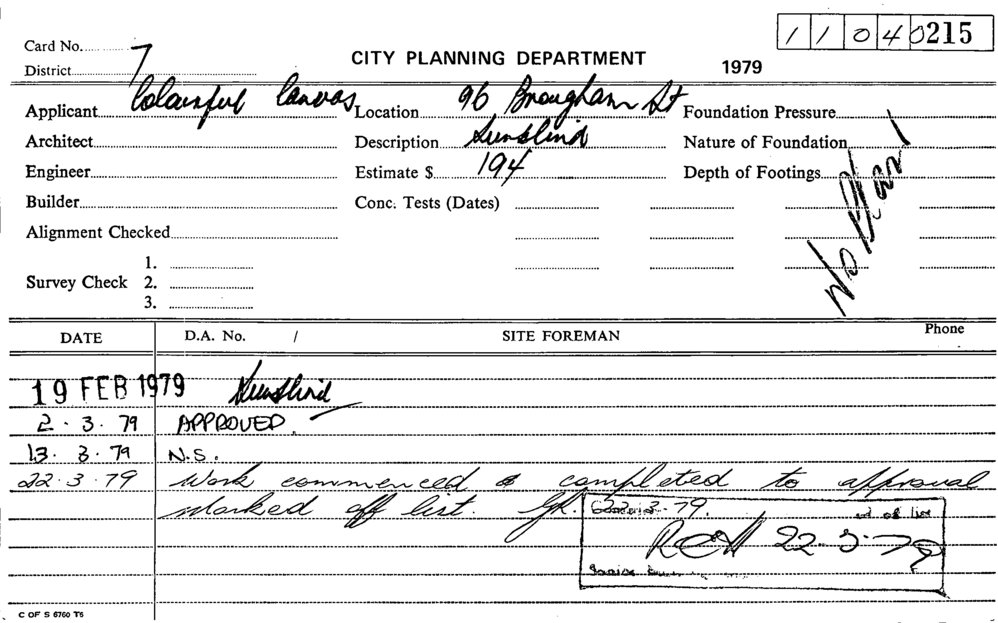 1 1 0 4 0215
Card No.
District 7
CITY PLANNING DEPARTMENT
1979
Applicant Colourful Canvas Location 96 Brougham St Foundation Pressure
Architect Description Sunblind Nature of Foundation
Engineer Estimate $ 194 Depth of Footings
Builder Conc. Tests (Dates)
No Plan
Alignment Checked
1.
Survey Check 2.
3.
DATE D.A. No. / SITE FOREMAN Phone
19 FEB 1979 Sunblind
2 . 3 . 79 APPROVED.
13. 3. 79 N.S.
22 . 3 . 79 Work commenced & completed to approval
Marked off list. 22.3.79.
22.3.79
C OF S 6760 T5